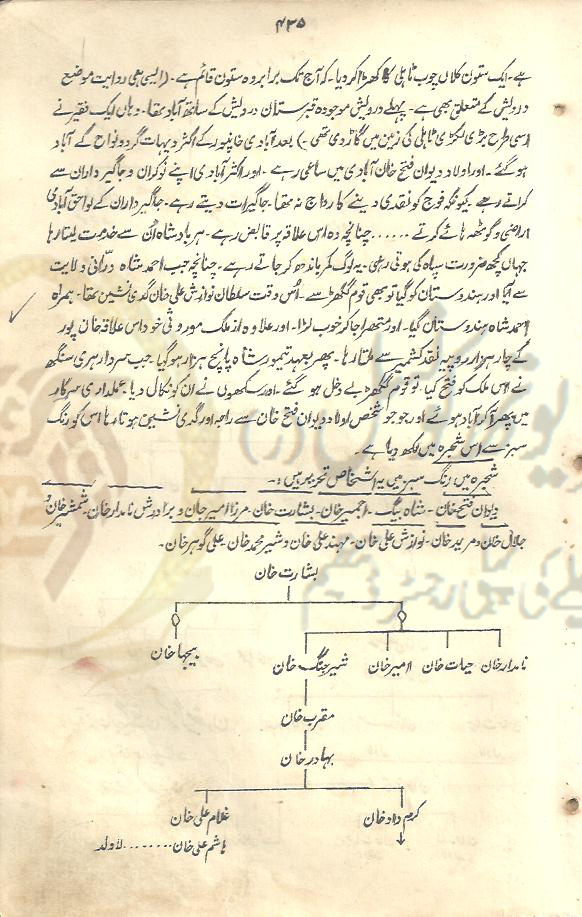 ۴۳۵
ہے۔ ایک ستون کلاں چوب ٹاہلی کا کھڑا کر دیا۔ کہ آج تک برابر وہ ستون قائم ہے۔ (ایسی ہی روایت موضع
درویش کے متعلق بھی ہے۔ پہلے درویش موجودہ قبرستان درویش کے ساتھ آباد تھا۔ وہاں ایک فقیر نے
اسی طرح بڑی لکڑی ٹاہلی کی زمین میں گاڑ دی تھی۔) بعد آبادی خانپور کے اکثر دیہات گرد و نواح کے آباد
ہو گئے۔ اور اولاد دیوان فتح خان آبادی میں ساعی رہے۔ اور اکثر آبادی اپنے نوکران و جاگیرداران سے
کراتے رہے۔ کیونکہ فوج کو نقدی دینے کا رواج نہ تھا۔ جاگیرات دیتے رہے۔ جاگیرداران کے لواحق آبادی
اراضی و گوٹھ ہائے کرتے ...... چنانچہ وہ اس علاقہ پر قابض رہے۔ ہر بادشاہ ان سے خدمت لیتا رہا
جہاں کچھ ضرورت سپاہ کی ہوتی رہی۔ یہ لوگ کمر باندھ کر جاتے رہے۔ چنانچہ جب احمد شاہ درّانی ولایت
سے آیا اور ہندوستان کو گیا تو بھی قوم گکھڑ سے۔ اُس وقت سلطان نوازش علی خان گدی نشین تھا۔ ہمراہ
احمد شاہ ہندوستان گیا۔ اور متھرا جا کر خوب لڑا۔ اور علاوہ از ملک موروثی خود اس علاقہ خان پور
کے چار ہزار روپیہ نقد کشمیر سے ملتا رہا۔ پھر بعہد تیمور شاہ پانچ ہزار ہو گیا۔ جب سردار ہری سنگھ
نے اس ملک کو فتح کیا۔ تو قوم گکھڑ بے دخل ہو گئے۔ اور سکھوں نے ان کو نکال دیا۔ عملداری سرکار
میں پھر آ کر آباد ہوئے اور جو جو شخص اولاد دیوان فتح خان سے راجہ اور گدی نشین ہوتا رہا اس کو رنگ
سبز سے اس شجرہ میں لکھ دیا ہے۔
شجرہ میں رنگ سبز میں یہ اشخاص تحریر ہیں:۔
دیوان فتح خان۔ شاہ بیگ۔ اجمیر خان۔ بشارت خان۔ مرزا امیر جان و برادرش نامدار خان۔ شمشیر خان و
جلال خان و مرید خان۔ نوازش علی خان۔ مہند علی خان و شیر محمد خان۔ علی گوہر خان۔
بشارت خان
نامدار خان حیات خان امیر خان شیر جنگ خان بیجہا خان
مقرب خان
بہادر خان
کرم داد خان غلام علی خان
ہاشم علی خان........ لاولد